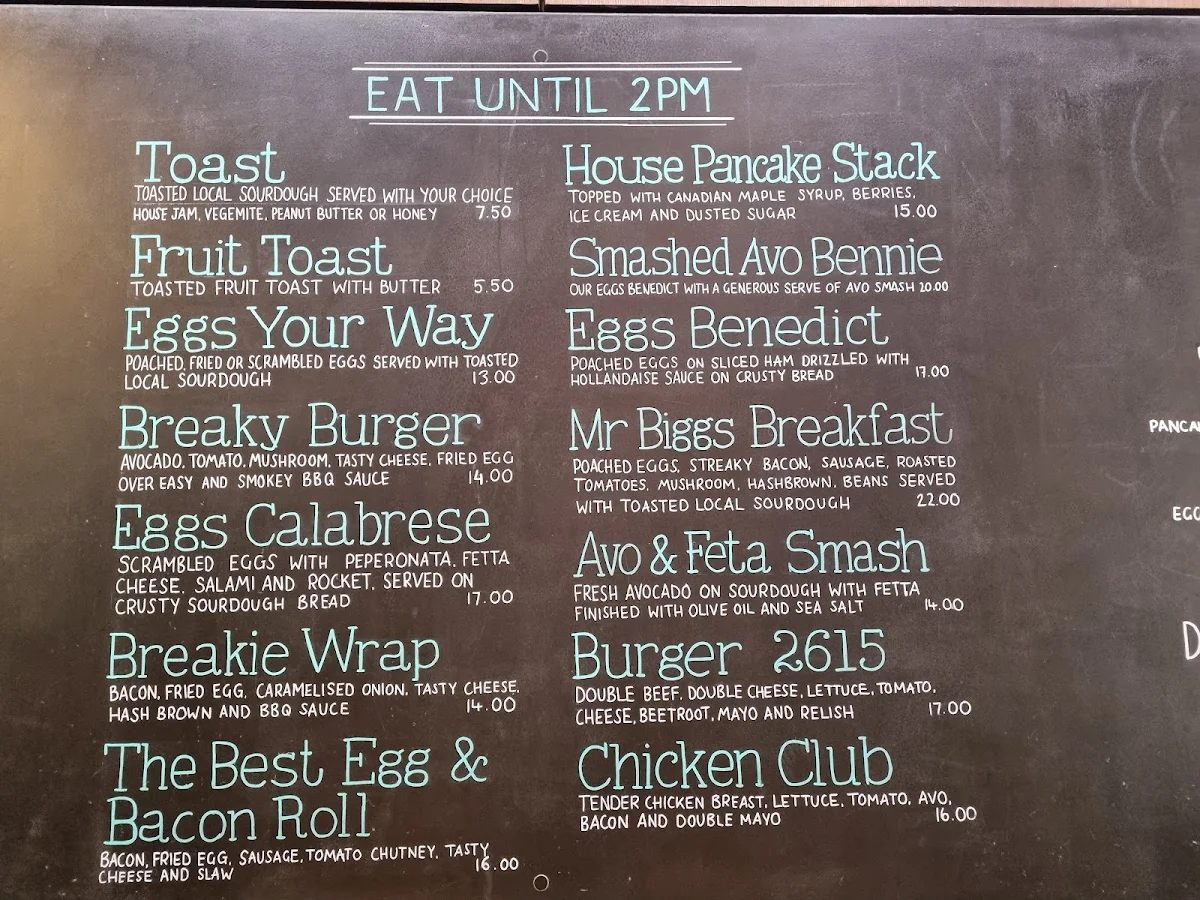 EAT UNTIL 2PM
Toast
TOASTED LOCAL SOURDOUGH SERVED WITH YOUR CHOICE
HOUSE JAM, VEGEMITE, PEANUT BUTTER OR HONEY 7.50
Fruit Toast
TOASTED FRUIT TOAST WITH BUTTER 5.50
Eggs Your Way
POACHED, FRIED OR SCRAMBLED EGGS SERVED WITH TOASTED
LOCAL SOURDOUGH 13.00
Breaky Burger
AVOCADO, TOMATO, MUSHROOM, TASTY CHEESE, FRIED EGG
OVER EASY AND SMOKEY BBQ SAUCE 14.00
Eggs Calabrese
SCRAMBLED EGGS WITH PEPERONATA, FETTA
CHEESE, SALAMI AND ROCKET, SERVED ON
CRUSTY SOURDOUGH BREAD 17.00
Breakie Wrap
BACON, FRIED EGG, CARAMELISED ONION, TASTY CHEESE,
HASH BROWN AND BBQ SAUCE 14.00
The Best Egg &
Bacon Roll
BACON, FRIED EGG, SAUSAGE, TOMATO CHUTNEY, TASTY
CHEESE AND SLAW 16.00
House Pancake Stack
TOPPED WITH CANADIAN MAPLE SYRUP, BERRIES,
ICE CREAM AND DUSTED SUGAR 15.00
Smashed Avo Bennie
OUR EGGS BENEDICT WITH A GENEROUS SERVE OF AVO SMASH 20.00
Eggs Benedict
POACHED EGGS ON SLICED HAM DRIZZLED WITH
HOLLANDAISE SAUCE ON CRUSTY BREAD 17.00
Mr Biggs Breakfast
POACHED EGGS, STREAKY BACON, SAUSAGE, ROASTED
TOMATOES, MUSHROOM, HASHBROWN, BEANS SERVED
WITH TOASTED LOCAL SOURDOUGH 22.00
Avo & Feta Smash
FRESH AVOCADO ON SOURDOUGH WITH FETTA
FINISHED WITH OLIVE OIL AND SEA SALT 14.00
Burger 2615
DOUBLE BEEF, DOUBLE CHEESE, LETTUCE, TOMATO,
CHEESE, BEETROOT, MAYO AND RELISH 17.00
Chicken Club
TENDER CHICKEN BREAST, LETTUCE, TOMATO, AVO,
BACON AND DOUBLE MAYO 16.00